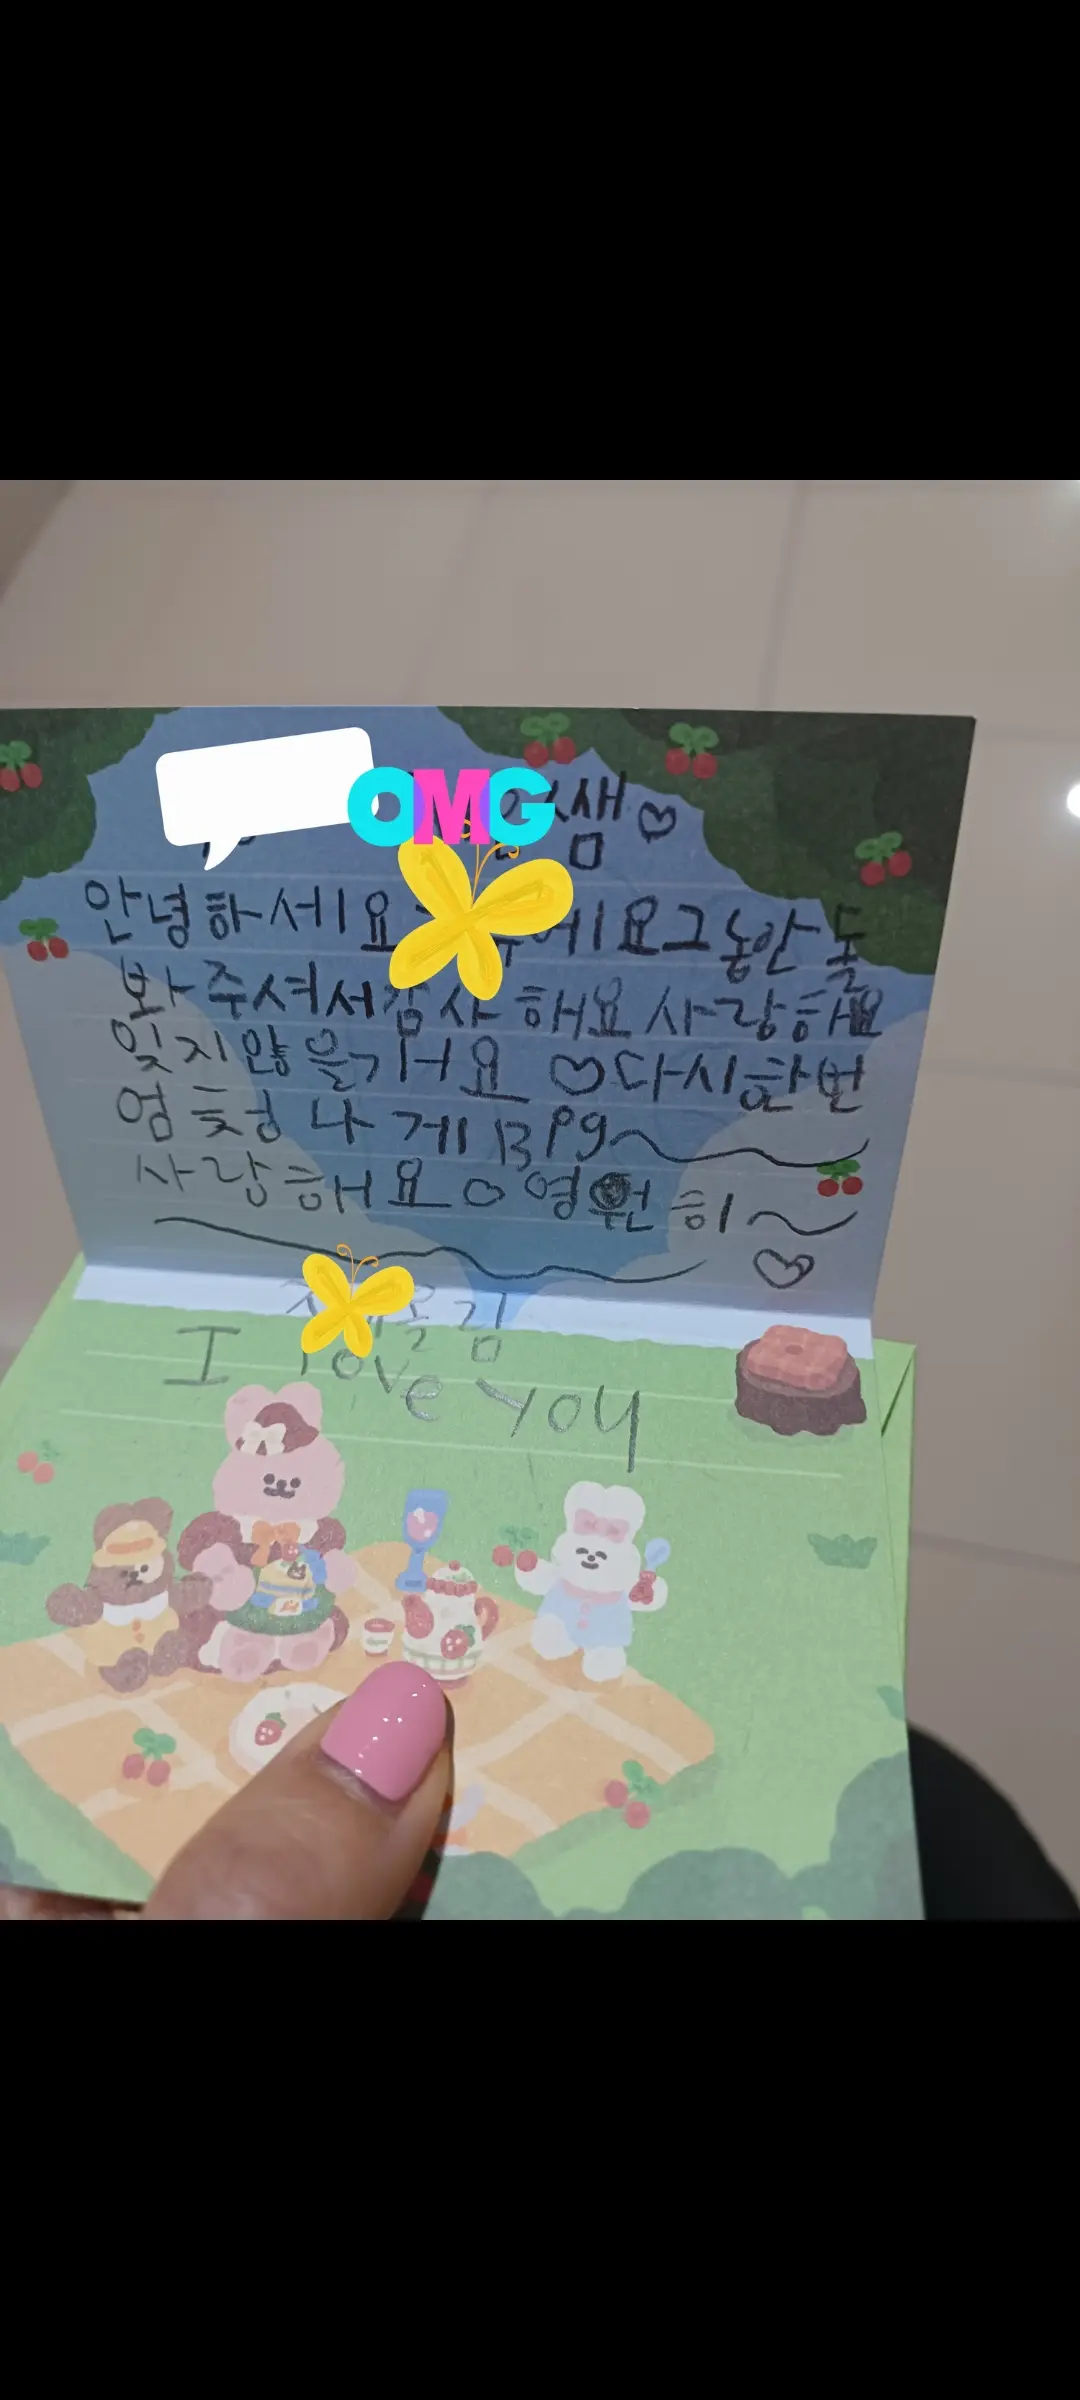 OMG
샘♡
안녕하세요 에요 그동안 돌
봐주셔서 감사해요 사랑해요
잊지않을거요 ♡ 다시한번
엄청나게
사랑해요♡ 영원히~
♡
올림
I love you